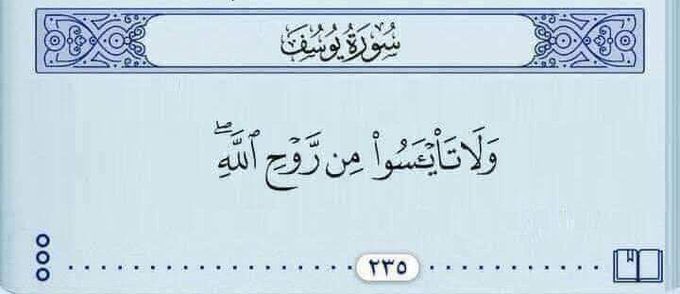 سُورَةُ يُوسُفَ
وَلَا تَا۟يْـَٔسُوا۟ مِن رَّوْحِ ٱللَّهِ ۖ
٢٣٥